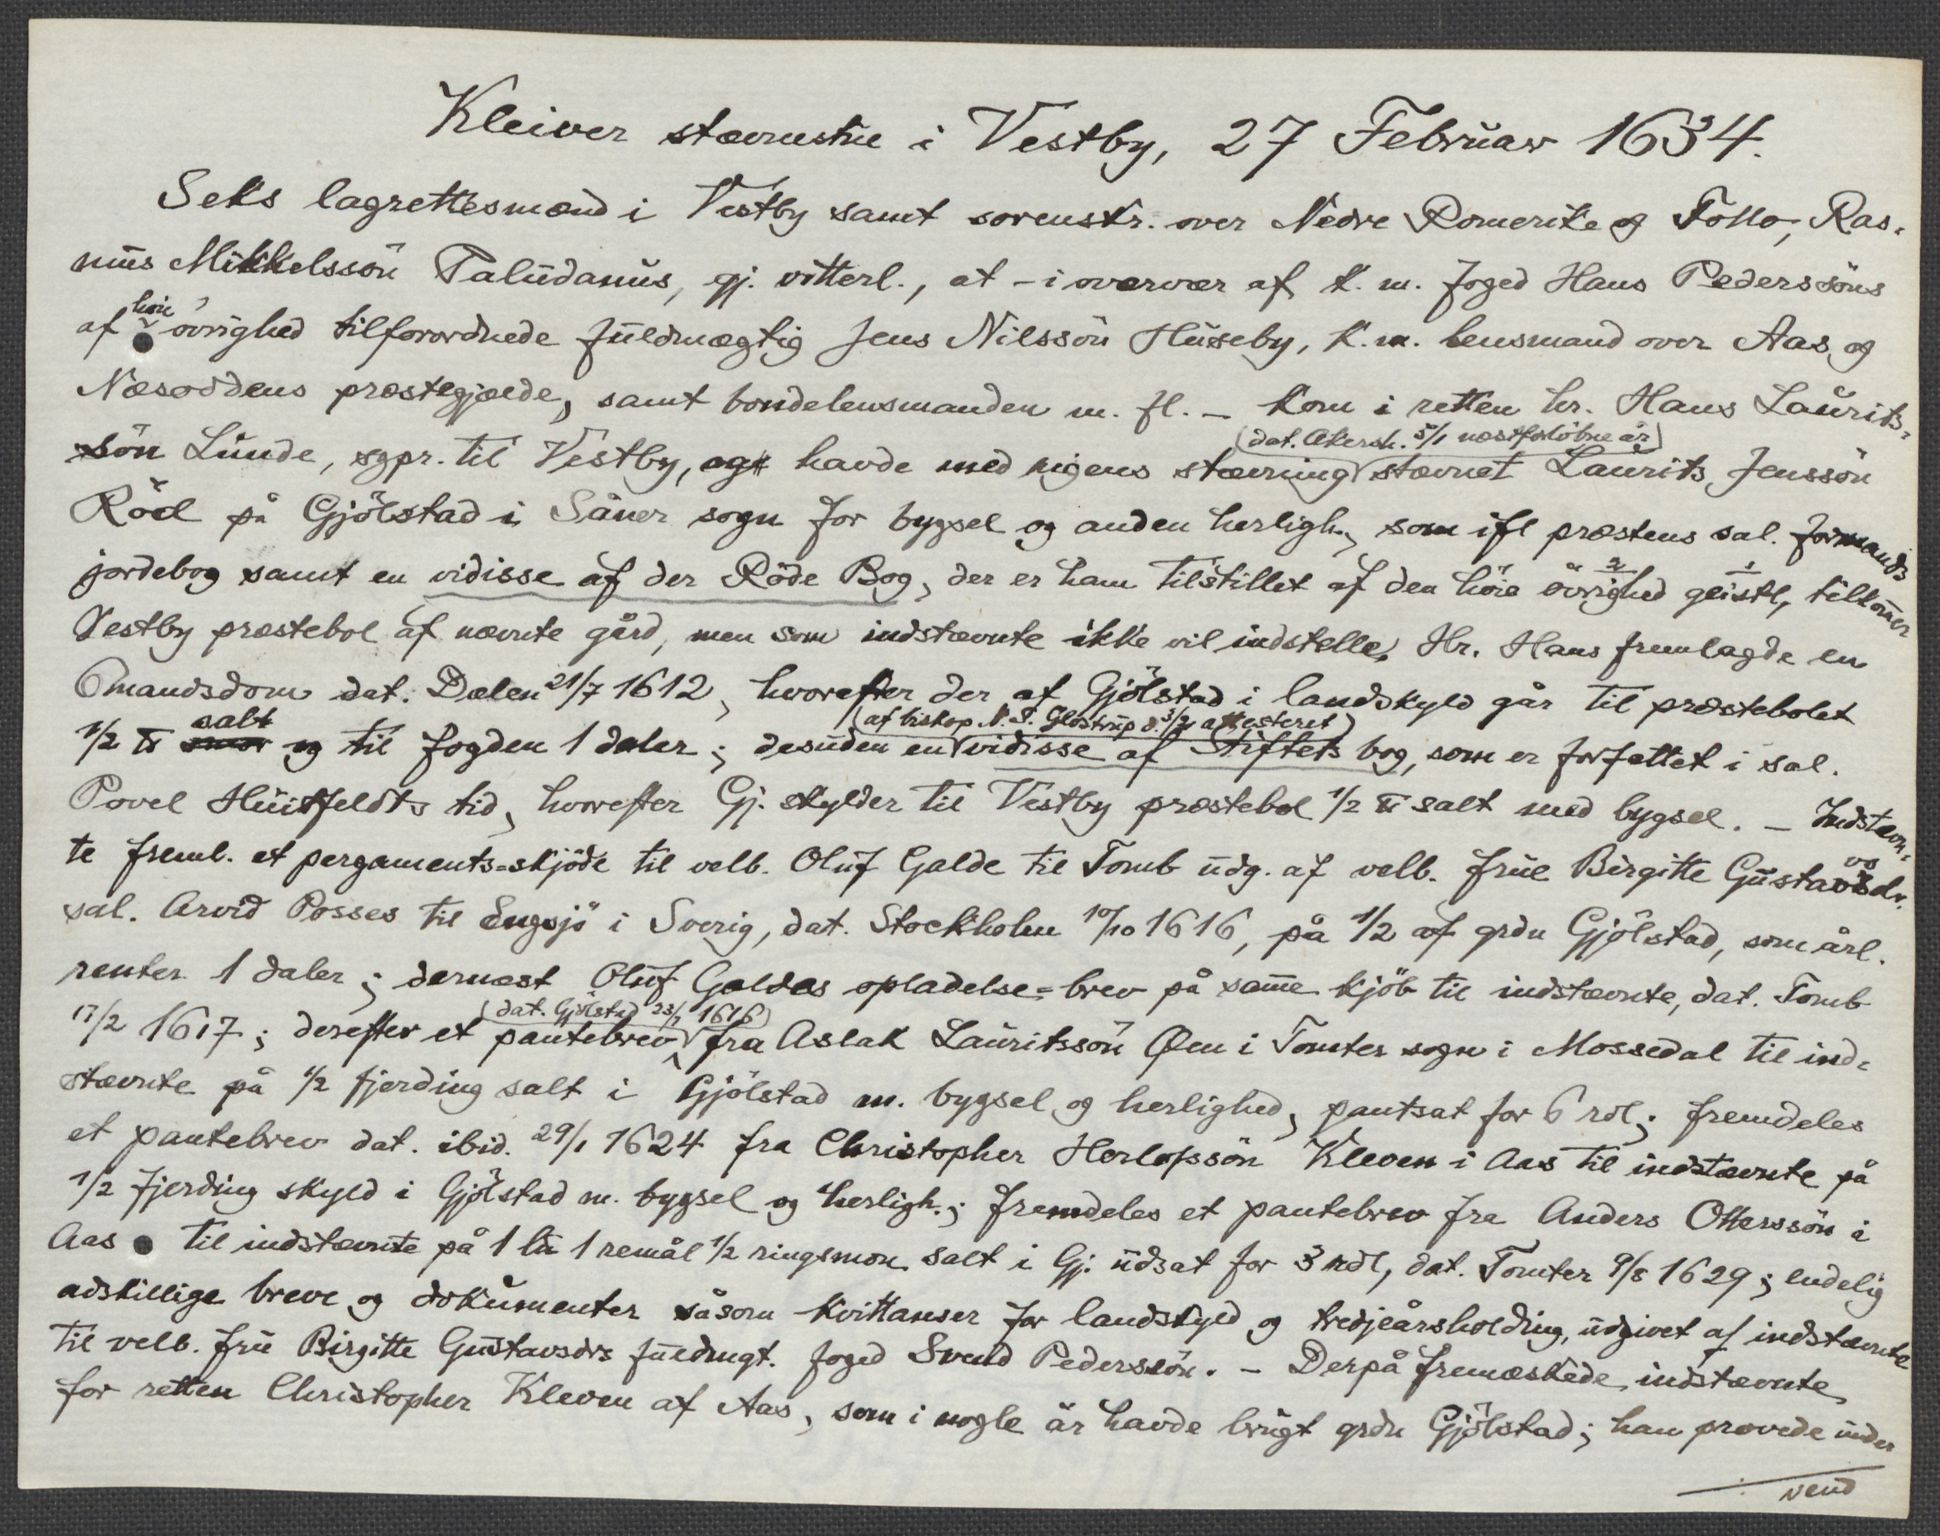 Kleiver stævnestue i Vestby, 27 Februar 1634.
Seks lagrettesmænd i Vestby samt sorenskr. over Nedre Romerike og Follo, Ras-
mus Mikkelssön Paludanus, gj. vitterl., at - i overvær af k. m. foged Hans Pederssöns
af høie övrighed tilforordnede fuldmægtig Jens Nilssön Huseby, k. m. lensmand over Aas og
Næsoddens præstegjælde, samt bondelensmanden m. fl. - kom i retten hr. Hans Laurits-
sön Lunde, sgpr. til Vestby, og havde med rigens stævning (dat. Akersh. 5/1 næstforløbne år) stævnet Laurits Jenssön
Röd på Gjölstad i Såner sogn for bygsel og anden herligh., som ifl præstens sal. formands
jordebog samt en vidisse af den Röde Bog, der er ham tilstillet af den høie övrighed geistl, tilkom̅er
Vestby præstebol af nævnte gård, men som indstævnte ikke vil indstelle. Hr. Hans fremlagde en
6mandsdom dat. Dælen 21/7 1612, hvorefter der af Gjölstad i landskyld går til præstebolet
1/2 ℔ salt og til fogden 1 daler; desuden en (af biskop N. S. Glostrup d. 3/2 attesteret) vidisse af Stiftets bog, som er forfattet i sal.
Povel Huitfeldts tid, hvorefter Gj. skylder til Vestby præstebol 1/2 ℔ salt med bygsel. - Indstævn-
te freml. et pergaments-skjöde til velb. Oluf Galde til Tomb udg. af velb. frue Birgitte Gustavsdr.
sal. Arvid Posses til Engsjö i Sverig, dat. Stockholm 10/10 1616, på 1/2 af grdn Gjölstad, som årl.
renter 1 daler; dernæst Oluf Galdes opladelse-brev på sam̅e kjöb til indstævnte, dat. Tomb
17/2 1617; derefter et pantebrev (dat. Gjölstad 23/1 1616) fra Aslak Lauritssön Øen i Tomter sogn i Mossedal til ind-
stævnte på 1/2 fjerding salt i Gjölstad m. bygsel og herlighed, pantsat for 6 rdl; fremdeles
et pantebrev dat. ibid. 29/1 1624 fra Christopher Herlofssön Kleven i Aas til indstævnte på
1/2 fjerding skyld i Gjölstad m. bygsel og herligh.; fremdeles et pantebrev fra Anders Otterssön i
Aas til indstævnte på 1 lü 1 remål 1/2 ringsmon salt i Gj. udsat for 3 rdl, dat. Tomter 9/8 1629; endelig
adskillige breve og dokumenter såsom kvittanser for landskyld og tredjeårsholding, udgivet af indstævnte
til velb. fru Birgitte Gustavsdrs fuldmgt. foged Svend Pederssön. - Derpå fremæskede indstævnte
for retten Christopher Kleven af Aas, som i nogle år havde brugt grdn Gjölstad; han provede under
vend